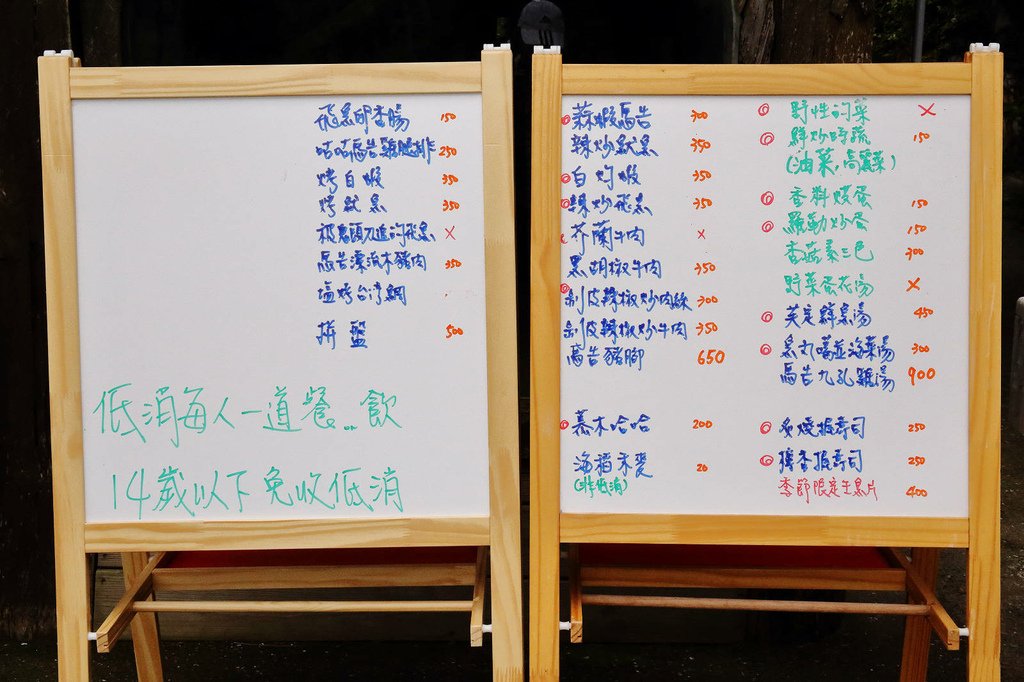 飛魚卵香腸 150
咕咕馬告雞腿排 250
烤白蝦 350
烤魷魚 350
被鬼頭刀追的飛魚 X
馬告漂流木豬肉 350
塩烤台灣鯛
拼盤 500
低消每人一道餐..飲
14歲以下免收低消
蒜蝦馬告 300
辣炒魷魚 350
白灼蝦 350
辣炒飛魚 350
芥蘭牛肉 X
黑胡椒牛肉 350
剝皮辣椒炒肉絲 300
剝皮辣椒炒牛肉 350
馬告豬腳 650
慕木哈哈 200
海稻禾爱 20
(非低消)
野性的菜 X
鮮炒時蔬 150
(油菜,高麗菜)
香料烘蛋 150
羅勒炒蛋 150
香菇素三色 300
野菜蛋花湯 X
芙定鮮魚湯 450
魚丸嘴並海菜湯 300
馬告九孔雞湯 900
炙燒握壽司 250
獐香握壽司 250
季節限定生魚片 400